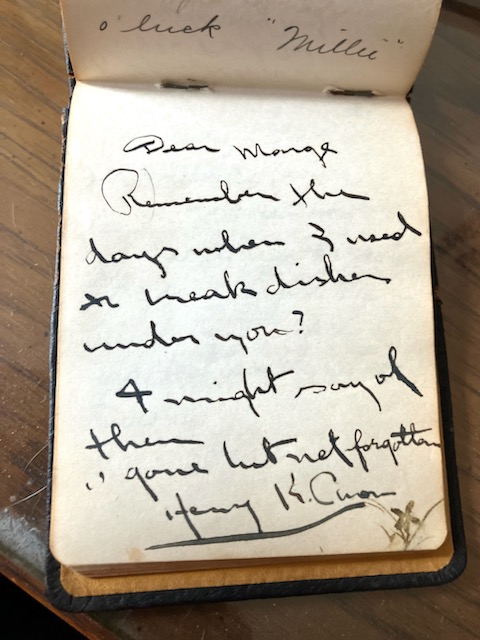 o luck "Millie"
Dear Marge
Remember the
days when I used
to break dishes
under you?
I might say of
them
" gone but not forgotten
Henry K.